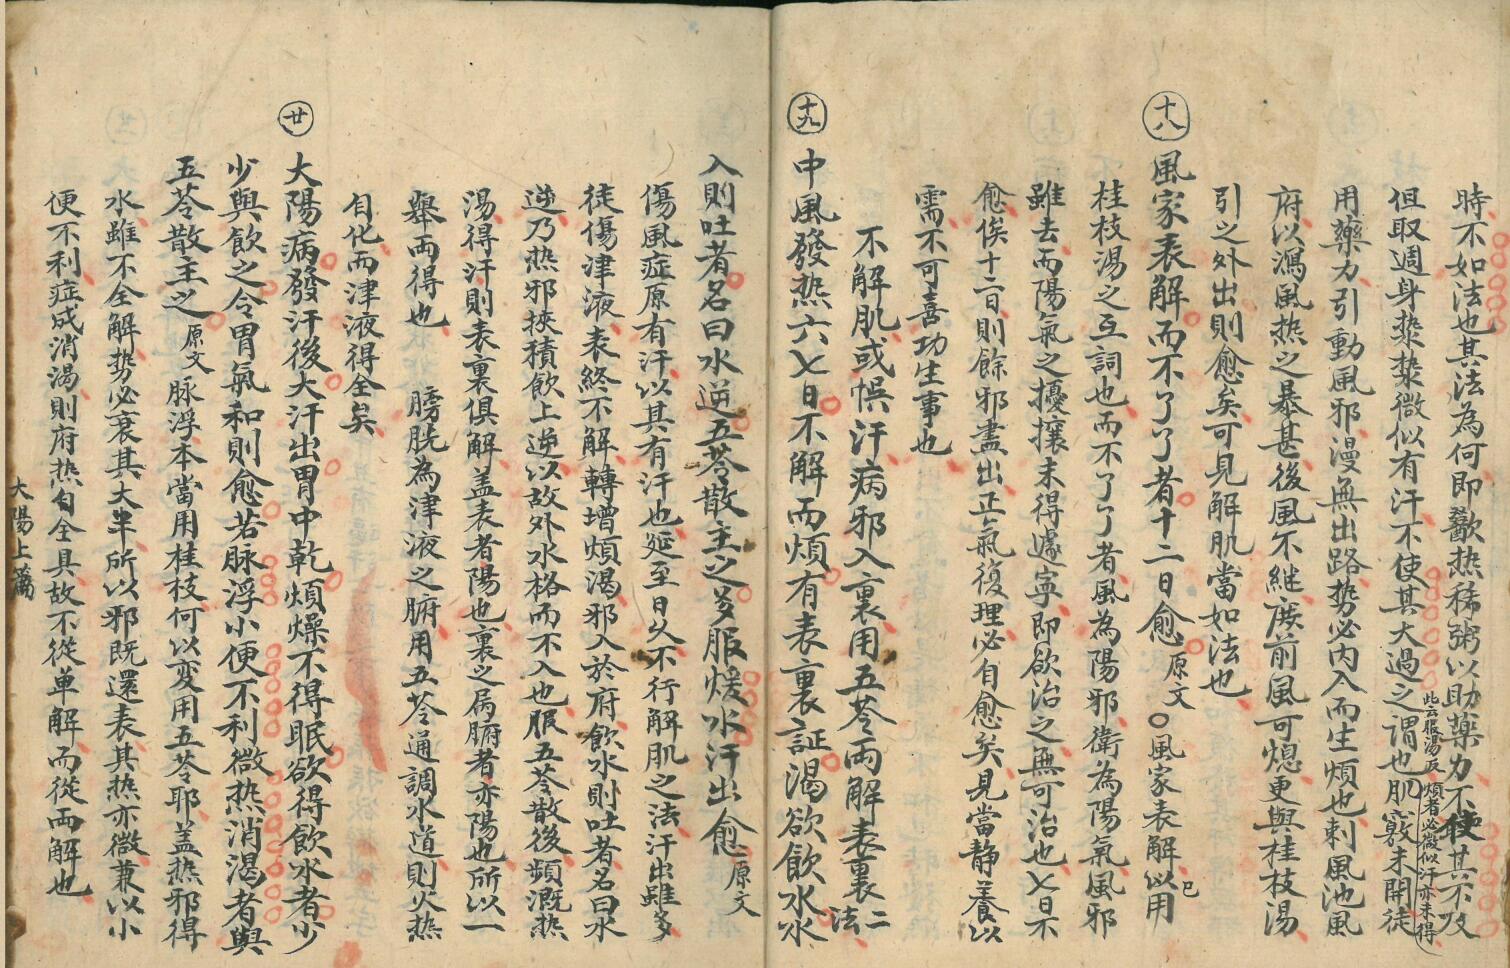 時不如法也其法為何即歠热稀粥以助藥力不使其不及
但取週身漐漐微似有汗不使其大過之謂也肌竅未開徒
此云服湯反煩者必微似汗亦未得
用藥力引動風邪漫無出路势必内入而生煩也刺風池風
府以瀉風热之暴甚後風不継庶前風可熄更與桂枝湯
引之外出則愈矣可見解肌當如法也
十八 風家表解而不了了者十二日愈 原文 〇風家表解以用
已
桂枝湯之互詞也而不了了者風為陽邪衛為陽氣風邪
雖去而陽氣之擾攘未得遽寧即欲治之無可治也七日不
愈俟十二日則餘邪盡出正氣復理必自愈矣見當静養以
需不可喜功生事也
不解肌或悞汗病邪入裏用五苓両解表裏二法
十九 中風發热六七日不解而煩有表裏証渴欲飲水水
入則吐者名曰水逆五苓散主之多服煖水汗出愈 原文
傷風症原有汗以其有汗也延至日久不行解肌之法汗出雖多
徒傷津液表終不解轉增煩渴邪入於府飲水則吐者名曰水
逆乃热邪挾積飲上逆以故外水格而不入也服五苓散後頻溉热
湯得汗則表裏俱解盖表者陽也裏之屙腑者亦陽也所以一
舉両得也 膀胱為津液之腑用五苓通調水道則火热
自化而津液得全矣
廿 大陽病發汗後大汗出胃中乾煩燥不得眠欲得飲水者少
少與飲之令胃氣和則愈若脉浮小便不利微热消渴者與
五苓散主之 原文 脉浮本當用桂枝何以変用五苓耶盖热邪得
水雖不全解势必衰其大半所以邪既還表其热亦微兼以小
便不利症成消渴則府热自全具故不從单解而從両解也
大陽上篇